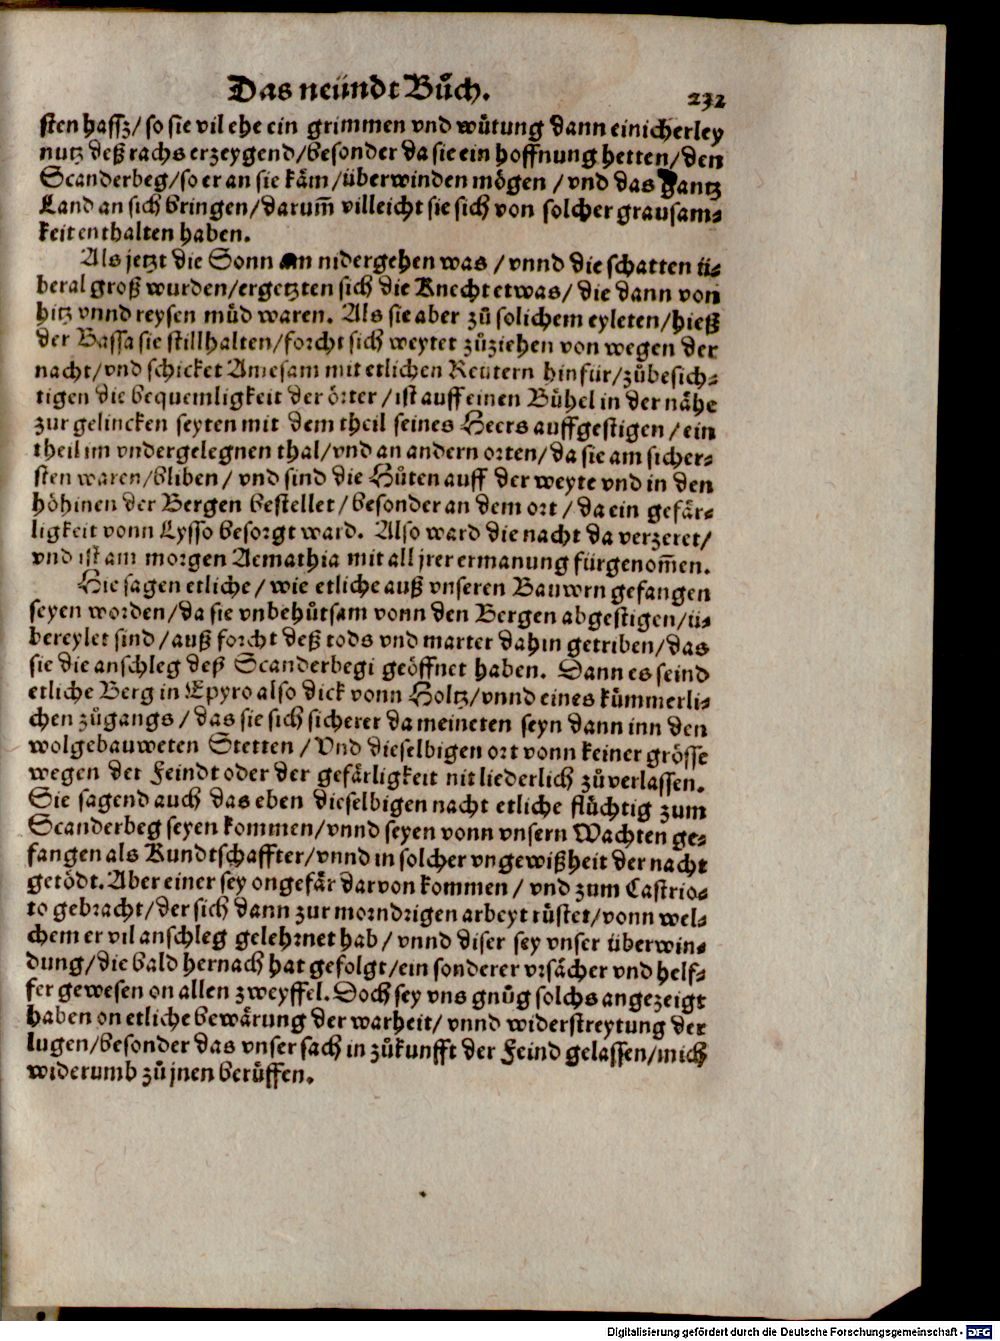 Das neündt Bůch.
232
sten haſſz/ so sie vil ehe ein grimmen vnd wůtung dann einicherley
nutz deß rachs erzeygend/besonder da sie ein hoffnung hetten/den
Scanderbeg/so er an sie käm/überwinden mögen/vnd das gantz
Land an sich bringen/darum̃ villeicht sie sich von solcher grausam-
keit enthalten haben.
Als jetzt die Sonn an nidergehen was/vnnd die schatten ü-
beral groß wurden/ergetzten sich die Knecht etwas/die dann von
hitz vnnd reysen můd waren. Als sie aber zů solichem eyleten/hieß
der Bassa sie stillhalten/forcht sich weyter zůziehen von wegen der
nacht/vnd schicket Amesam mit etlichen Reutern hinfür/zůbesich-
tigen die bequemligkeit der örter/ist auff einen Bühel in der nähe
zur gelincken seyten mit dem theil seines Heers auffgestigen/ein
theil im vndergelegnen thal/vnd an andern orten/da sie am sicher-
sten waren/bliben/vnd sind die Hůten auff der weyte vnd in den
höhinen der Bergen bestellet/besonder an dem ort/da ein gefär-
ligkeit vonn Lysso besorgt ward. Also ward die nacht da verzeret/
vnd ist am morgen Aemathia mit all jrer ermanung fürgenom̃en.
Hie sagen etliche/wie etliche auß vnseren Bauwrn gefangen
seyen worden/da sie vnbehůtsam vonn den Bergen abgestigen/ü-
bereylet sind/auß forcht deß tods vnd marter dahin getriben/das
sie die anschleg deß Scanderbegi geöffnet haben. Dann es seind
etliche Berg in Epyro also dick vonn Holtz/vnnd eines kümmerli-
chen zůgangs/das sie sich sicherer da meineten seyn dann inn den
wolgebauweten Stetten/Vnd dieselbigen ort vonn keiner grösse
wegen der Feindt oder der gefärligkeit nit liederlich zů verlassen.
Sie sagend auch das eben dieselbigen nacht etliche flüchtig zum
Scanderbeg seyen kommen/vnnd seyen vonn vnsern Wachten ge-
fangen als Kundtschaffter/vnnd in solcher vngewißheit der nacht
getödt. Aber einer sey ongefär darvon kommen/vnd zum Castrio-
to gebracht/der sich dann zur morndrigen arbeyt rüstet/vonn wel-
chem er vil anschleg gelehrnet hab/vnnd diser sey vnser überwin-
dung/die bald hernach hat gefolgt/ein sonderer vrsächer vnd helf-
fer gewesen on allen zweyffel. Doch sey vns gnůg solchs angezeigt
haben on etliche bewärung der warheit/vnnd widerstreytung der
lugen/besonder das vnser sach in zůkunfft der Feind gelassen/mich
widerumb zů jnen berůffen.
Digitalisierung gefördert durch die Deutsche Forschungsgemeinschaft - DFG